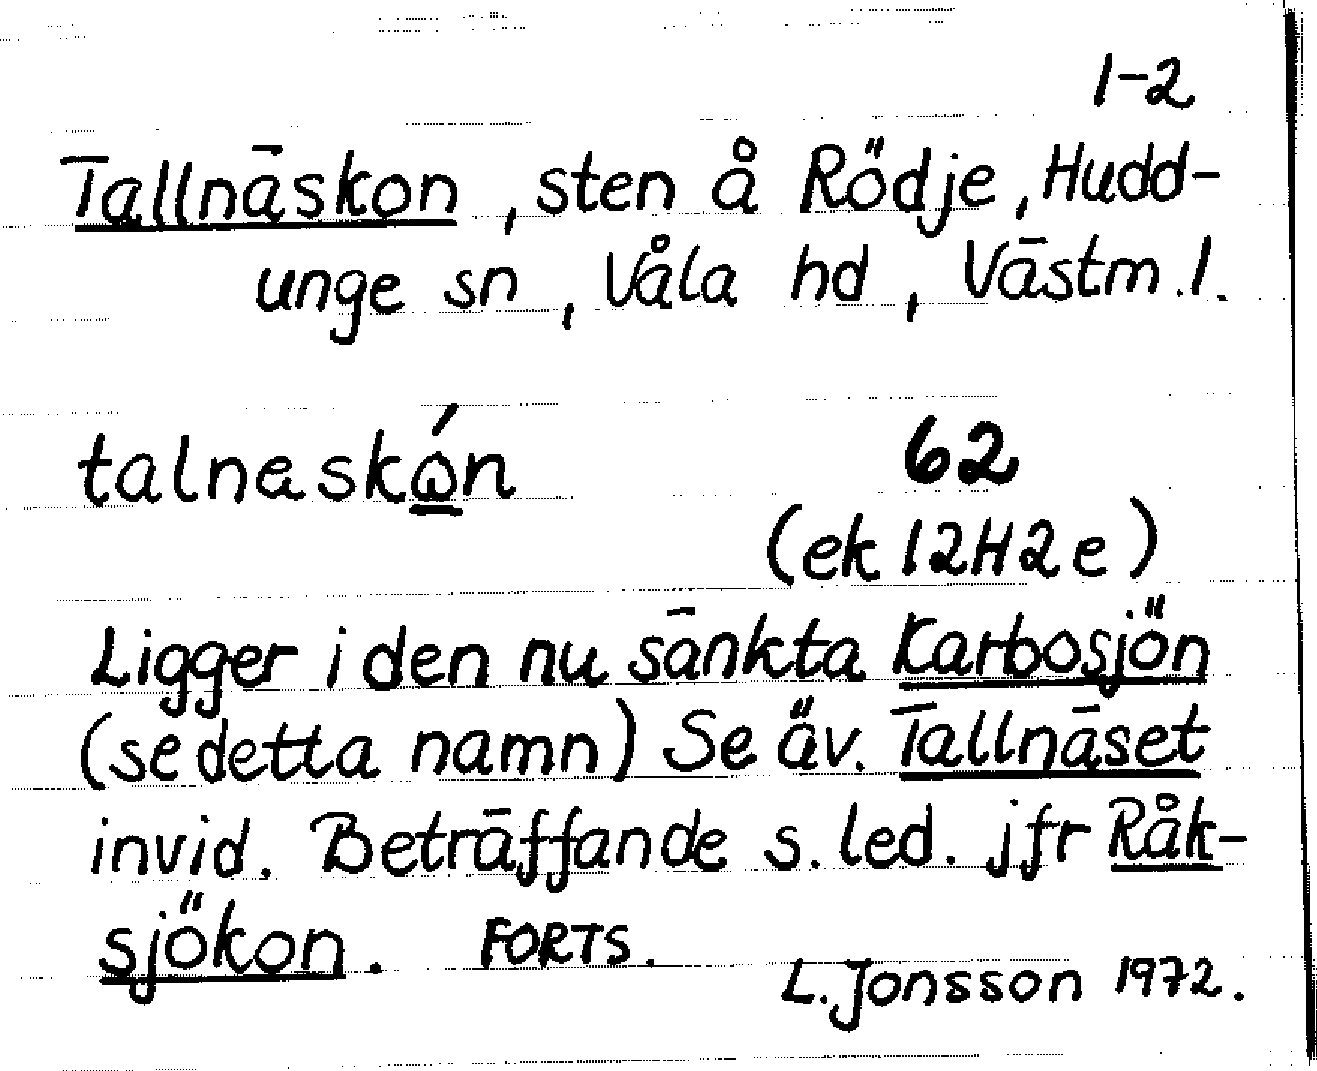 1-2
Tallnäskon, sten å Rödje, Hudd-
unge sn, Våla hd, Västm. l.
62
(ek 12H2e)
Ligger i den nu sänkta Karbosjön
(se detta namn) Se äv. Tallnäset
invid. Beträffande s. led. jfr Råk-
sjökon. FORTS.
L. Jonsson 1972.